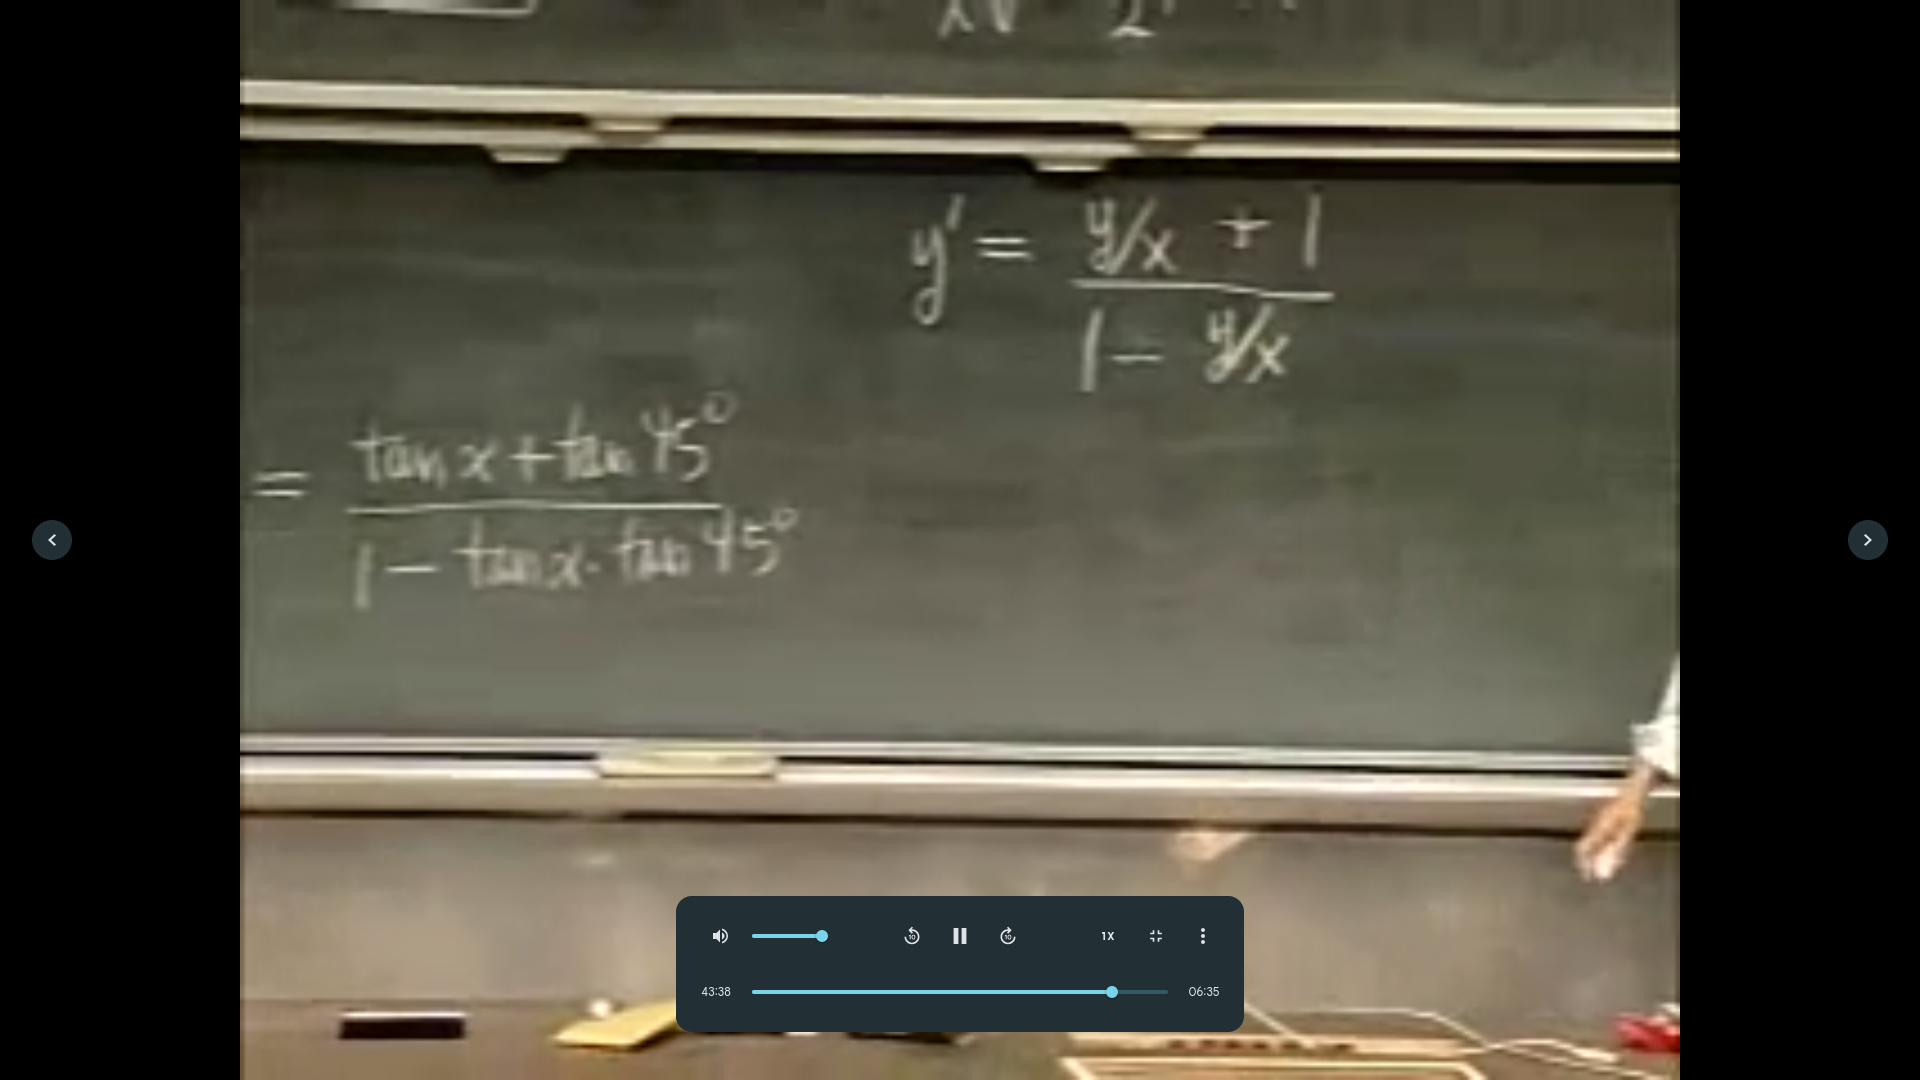 y' = (y/x + 1) / (1 - y/x)
= (tan x + tan 45°) / (1 - tan x · tan 45°)
1X
43:38
06:35